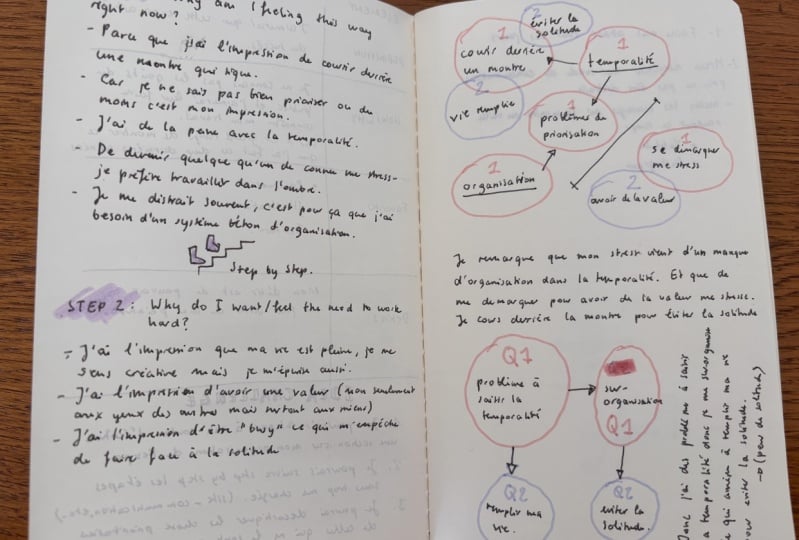 am I feeling this way
right now?
- Parce que j'ai l'impression de courir derrière
une montre qui tique.
- Car je ne sais pas bien prioriser ou du
moins c'est mon impression.
- J'ai de la peine avec la temporalité.
- De devenir quelque qu'un de connu me stress-
je préfère travailler dans l'ombre.
- Je me distrait souvent, c'est pour ça que j'ai
besoin d'un système béton d'organisation.
Step by Step.
STEP 2: Why do I want/feel the need to work
hard?
- J'ai l'impression que ma vie est pleine, je me
sens créative mais je m'épuise aussi.
- J'ai l'impression d'avoir une valeur (non seulement
aux yeux des autres mais surtout aux miens)
- J'ai l'impression d'être "busy" ce qui m'empêche
de faire face à la solitude
2
éviter la
solitude
1
courir derrière
un montre
1
temporalité
2
vie remplie
1
problèmes de
priorisation
1
se démarquer
me stress
1
organisation
2
avoir de la valeur
Je remarque que mon stress vient d'un manque
d'organisation dans la temporalité. Et que de
me demarquer pour avoir de la valeur me stresse.
Je cours derrière la montre pour éviter la solitude
Q1
problème à
saisir la
temporalité
sur-
organisation
Q1
Q2
remplir ma
vie.
Q2
éviter la
solitude.
Donc j'ai des problème à saisir
la temporalité donc je me sur-organise
ce qui amène à remplir ma vie
pour eviter la solitude.
→ (peur de solitude)